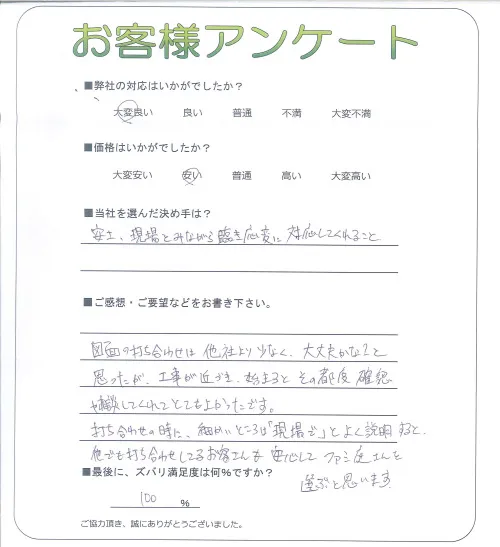 お客様アンケート
■弊社の対応はいかがでしたか?
大変良い 良い 普通 不満 大変不満
■価格はいかがでしたか?
大変安い 安い 普通 高い 大変高い
■当社を選んだ決め手は?
安さ、現場とみながら臨機応変に対応してくれること
■ご感想・ご要望などをお書き下さい。
図面の打ち合わせは他社より少なく、大丈夫かな?と
思ったが、工事が近づき、始まるとその都度確認
相談してくれてとてもよかったです。
打ち合わせの時に、細かいところは「現場で」とよく説明すると、
他でも打ち合わせしてるお客さんも安心してファミ庭さんを
選ぶと思います。
■最後に、ズバリ満足度は何%ですか?
100 %
ご協力頂き、誠にありがとうございました。